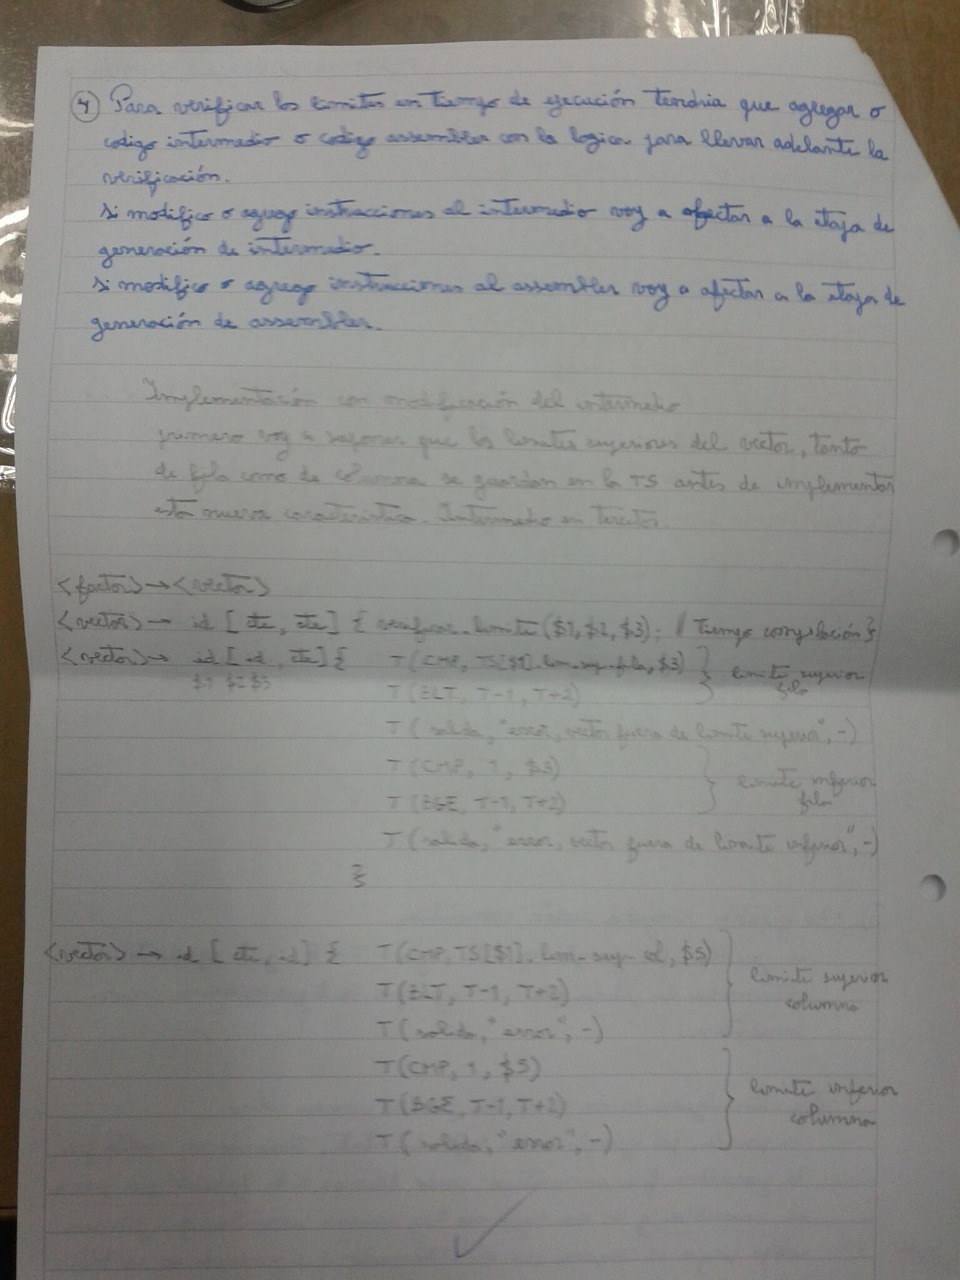 4 Para verificar los limites en tiempo de ejecución tendria que agregar o
codigo intermedio o codigo assembler con la logica para llevar adelante la
verificación.
Si modifico o agrego instrucciones al intermedio voy a afectar a la etapa de
generación de intermedio.
Si modifico o agrego instrucciones al assembler voy a afectar a la etapa de
generación de assembler.
Implementación con modificación del intermedio
primero voy a suponer que los limites superiores del vector, tanto
de fila como de columna se guardan en la TS antes de implementar
esta nueva caracteristica. Intermedio en tercetos.
<factor> → <vector>
<vector> → id [ cte, cte ] { verificar_limite($1, $2, $3); // Tiempo compilación }
<vector> → id [ id, cte ] { T(CMP, TS[$1].lim-sup-fila, $3) } limite superior fila
$1 $2 $3
T(BLT, T-1, T+2)
T(salida, "error, vector fuera de limite superior", -)
T(CMP, 1, $3) } limite inferior fila
T(BGE, T-1, T+2)
T(salida, "error, vector fuera de limite inferior", -)
}
<vector> → id [ cte, id ] { T(CMP, TS[$1].lim-sup-col, $5)
T(BLT, T-1, T+2) } limite superior columna
T(salida, "error", -)
T(CMP, 1, $5)
T(BGE, T-1, T+2) } limite inferior columna
T(salida, "error", -)